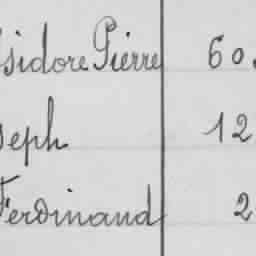 Isidore Pierre 60.
seph 12
Ferdinand 2